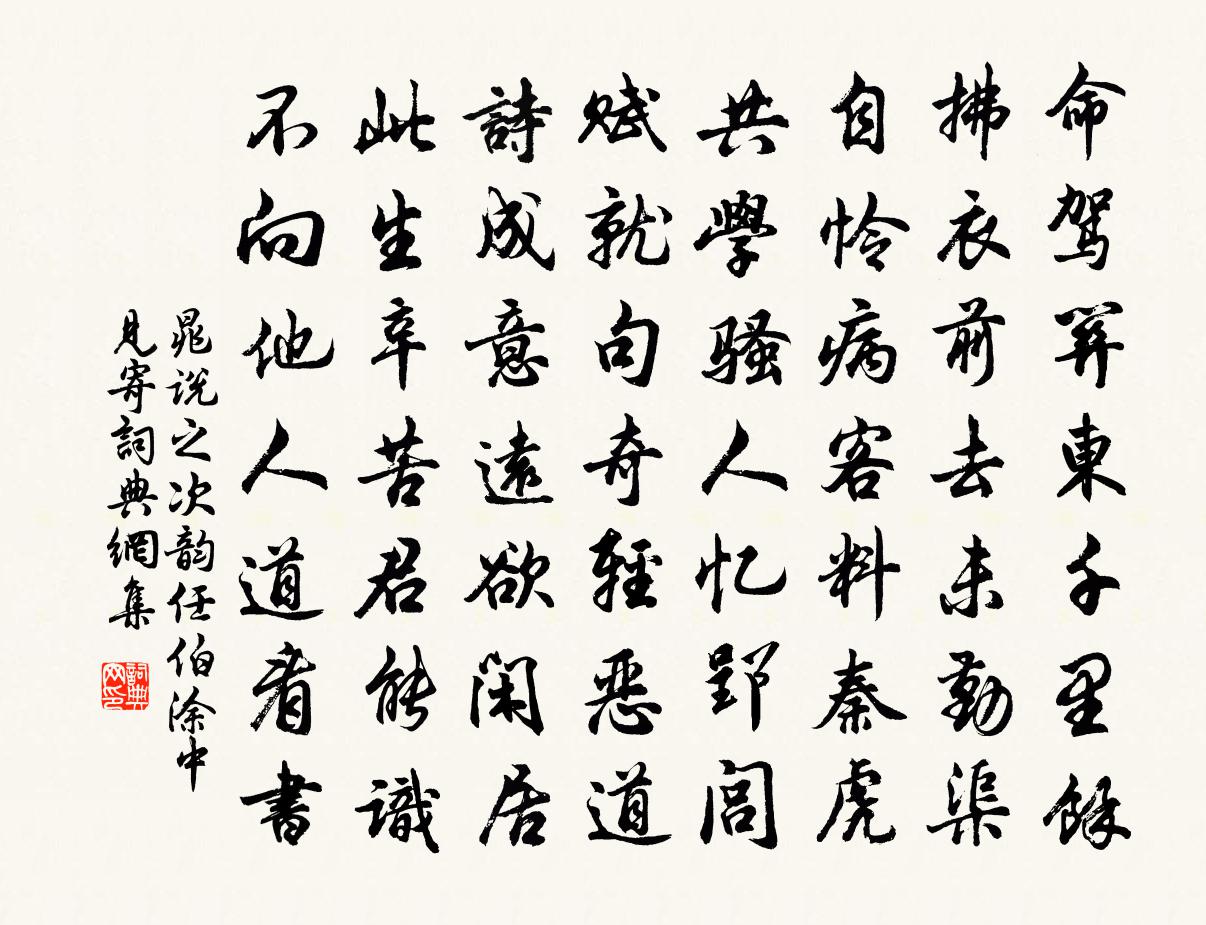 命駕算東千里餘
拂衣前去未勤渠
自憐病客料秦虎
共學騷人忆郢閭
賦就句奇輕惡道
詩成意遠欲閑居
此生辛苦君能識
不向他人道着書
晁说之次韵任伯涂中
見寄詞典網集
詞典网印